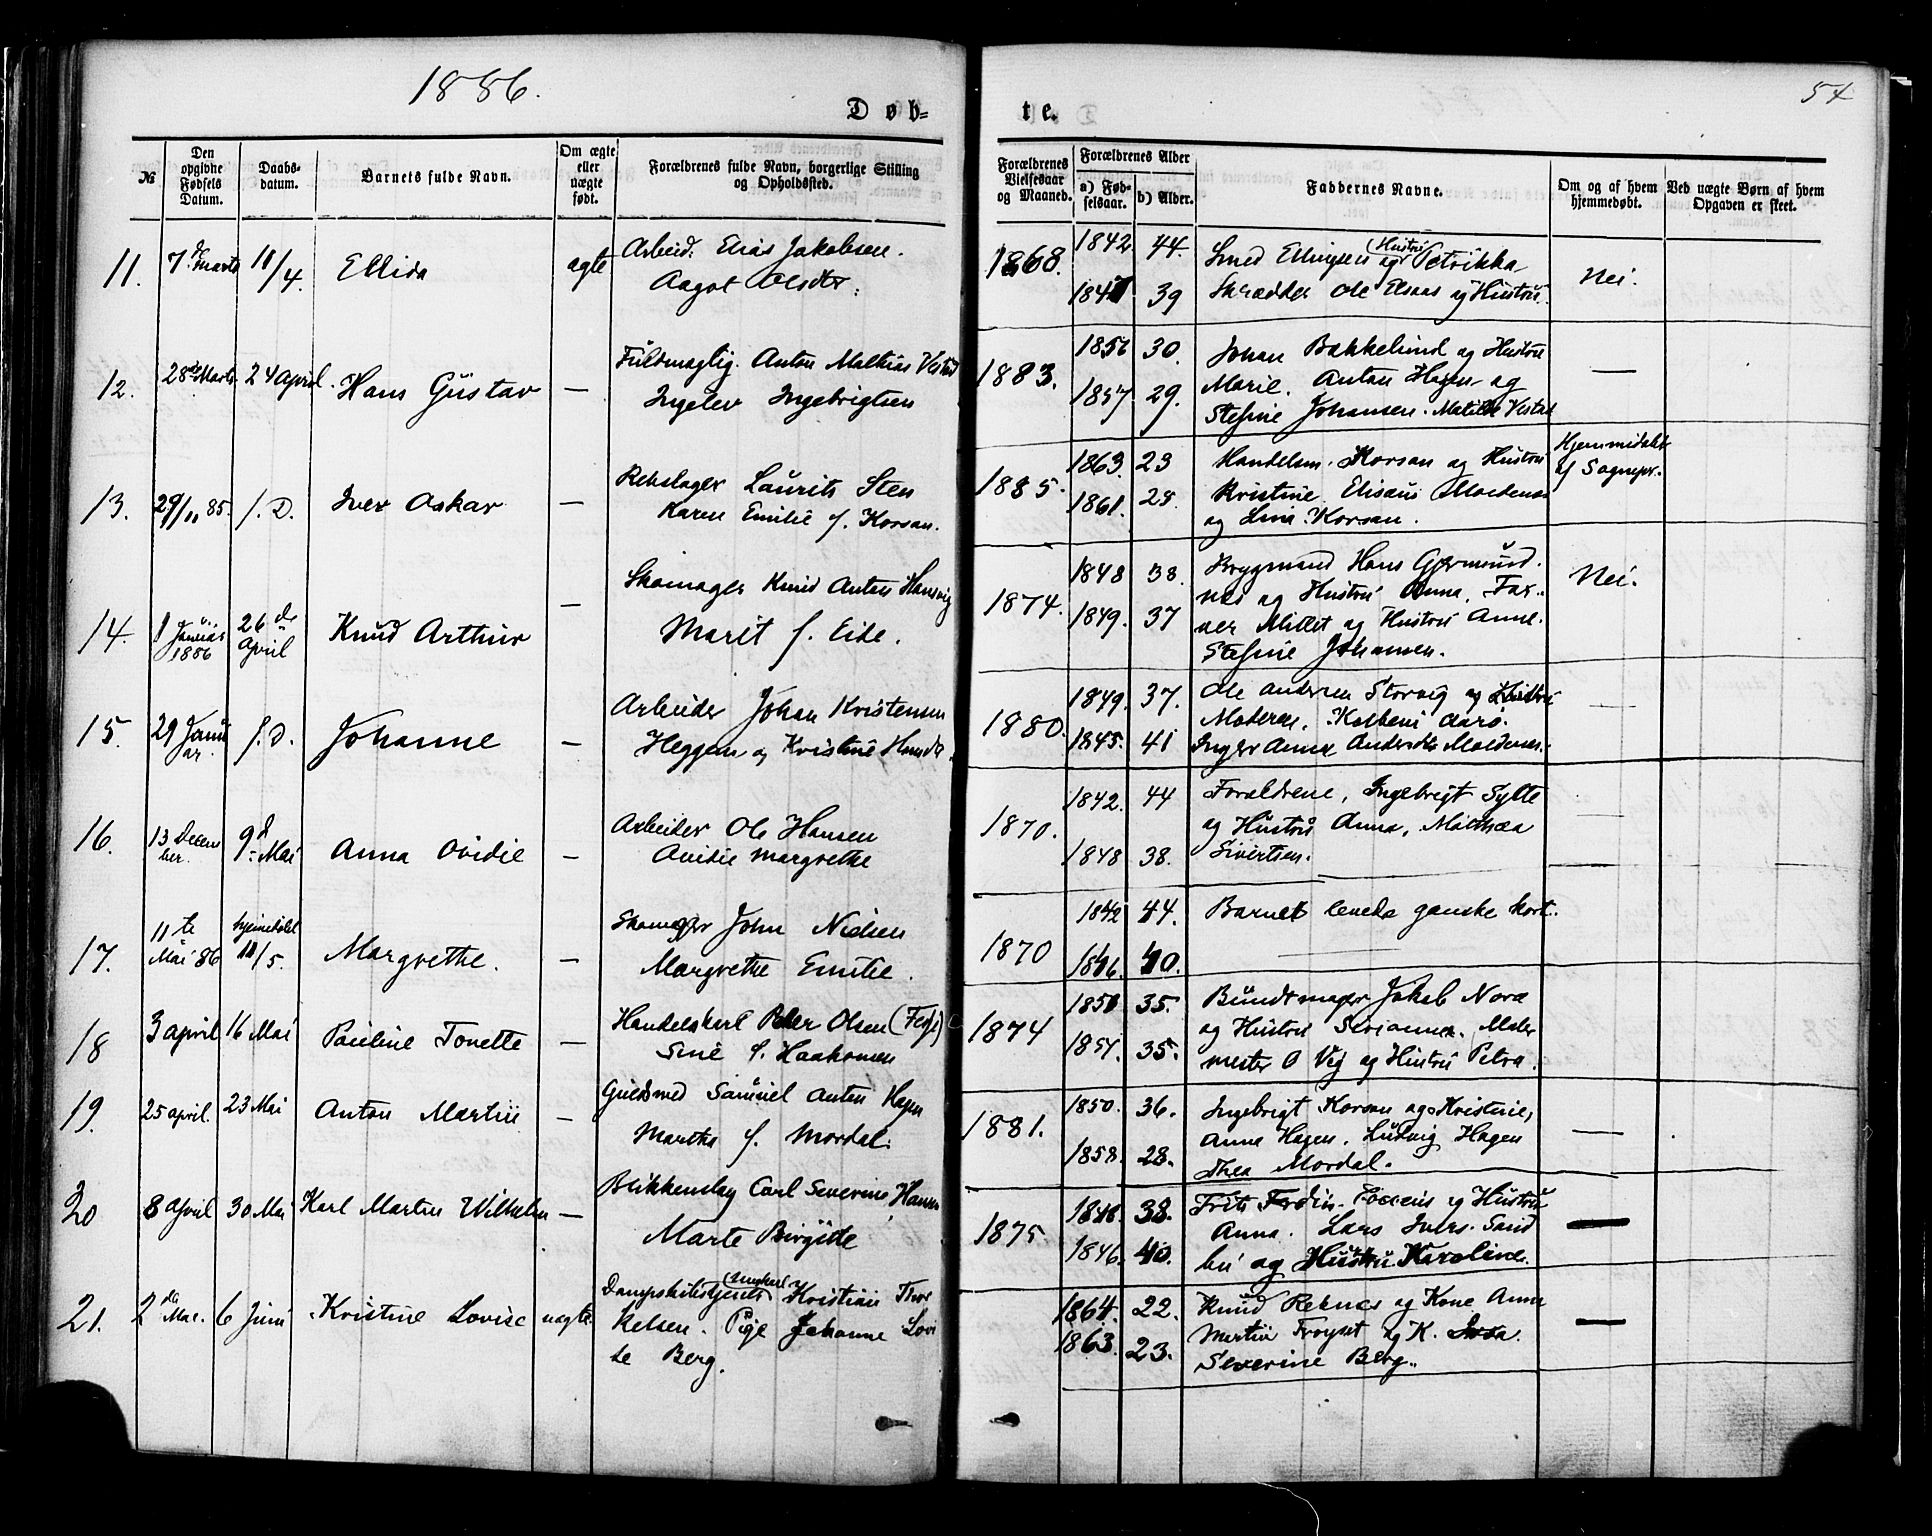 1886.
54
Døb-
te.
№
Den opgivne Fødsels Datum.
Daabs-datum.
Barnets fulde Navn.
Om ægte eller uægte født.
Forældrenes fulde Navn, borgerlige Stilling og Opholdssted.
Forældrenes Vielsesaar og Maaned.
Forældrenes Alder
a) Fødselsaar.
b) Alder.
Faddernes Navne.
Om og af hvem hjemmedøbt.
Ved uægte Børn af hvem Opgaven er skeet.
11. 7 d Marts 11/4 Ellida ægte Arbeid. Elias Jakobsen.
Aagot Olsdtr.
1868. 1842 44. Smed Ellingsen og Hustru Petrikka
1847 39 Skrædder Ole Elsaas og Hustru.
Nei.
12. 28de Marts 24 April. Hans Gustav — Fuldmægtig. Anton Mathias Vestad
Ingelev Ingebrigtsen
1883. 1856 30. Johan Bakkelund og Hustru
1857 29. Marie. Anton Hagen og
Stefine Johansen. Matilde Vestad
—
13. 29/11 85. f. D. Iver Oskar — Rebslager Laurits Sten
Karen Emilie f. Korsan.
1885. 1863 23 Handelsm. Korsan og Hustru
1861. 25. Kristine. Elisæus Moldenæs
og Lina Korsan.
Hjemmedøbt
af Sognepr.
14. 1 Januar 1886 26 de April Knud Arthur — Skomager Knud Anton Hansvig
Marit f. Eide.
1874. 1848 38. Brygmand Hans Gjermund-
1849. 37 næs og Hustru Anna, Far-
ver Millet og Hustru Anne.
Stefine Johansen.
Nei.
15. 29 Januar. f. D. Johanne — Arbeider Johan Kristensen
Heggem og Kristine
1880. 1849. 37. Ole Andersen Storvig og Hustru
1845. 41 Moderen, Aarø.
Inger Anna Andersdtr Moldenæs.
—
16. 13 December. 9 d Mai Anna Ovidie — Arbeider Ole Hansen
Ovidie Margrethe
1870. 1842. 44 Forældrene, Ingebrigt Sylte
og Hustru Anna, Mathea
1848 38. Sivertsen.
—
17. 11 te Mai 86 hjemmedøbt 11/5. Margrethe. — Skomager John Nielsen
Margrethe Emilie.
1870 1842 44. Barnet levede ganske kort.
1846. 40.
18 3 April 16 Mai Pauline Tonette — Handelskarl Peder Olsen
Sine f. Haakonsen
1874 1851 35. Bundtmager Jakob Nora
og Hustru Serianna. Maler
1851. 35. mester O Vej og Hustru Petra.
19. 25 April. 23 Mai Anton Martin — Guldsmed Samuel Anton Hagen
Martha f. Mordal.
1881. 1850. 36. Ingebrigt Korsan og Kristine,
Anna Hagen. Ludvig Hagen
1858. 28. Thea Mordal.
—
20 8 April 30 Mai Karl Martin Wilhelm — Blikkenslag Carl Severin Hansen
Marte Birgitte
1875 1848. 38. Frits Ferdin. og Hustru
Anna. Lars Ivers. Sand
1846. 40. bu og Hustru Karoline.
—
21. 2 de Mai. 6 Juni Kristine Lovise uægte. Dampskibstjener (Ungkarl) Kristian Thor
kelsen. Pige Johanne Lovi
se Berg.
1864. 22. Knud Reknes og Kone Anna
1863. 23. Martin Frøyset og K.
Severine Berg.
—